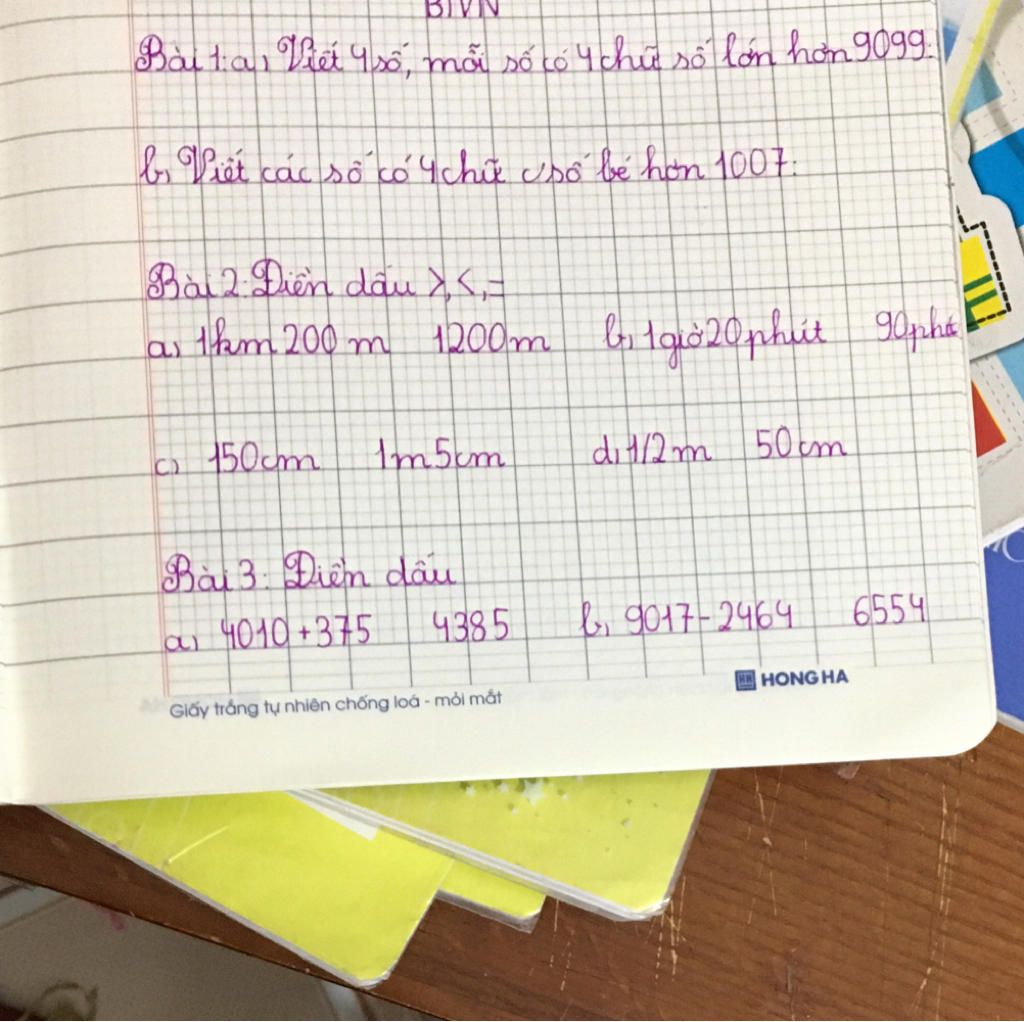 BTVN
Bài 1: a, Viết 4 số, mỗi số có 4 chữ số lớn hơn 9099:
b, Viết các số có 4 chữ số bé hơn 1007:
Bài 2: Điền dấu >, <, =
a, 1km 200 m 1200m b, 1 giờ 20 phút 90 phú
c, 150cm 1m5cm d, 1/2 m 50 cm
Bài 3: Điền dấu
a, 4010 + 375 4385 b, 9017 - 2464 6554
HH HONG HA
Giấy trắng tự nhiên chống loá - mỏi mắt